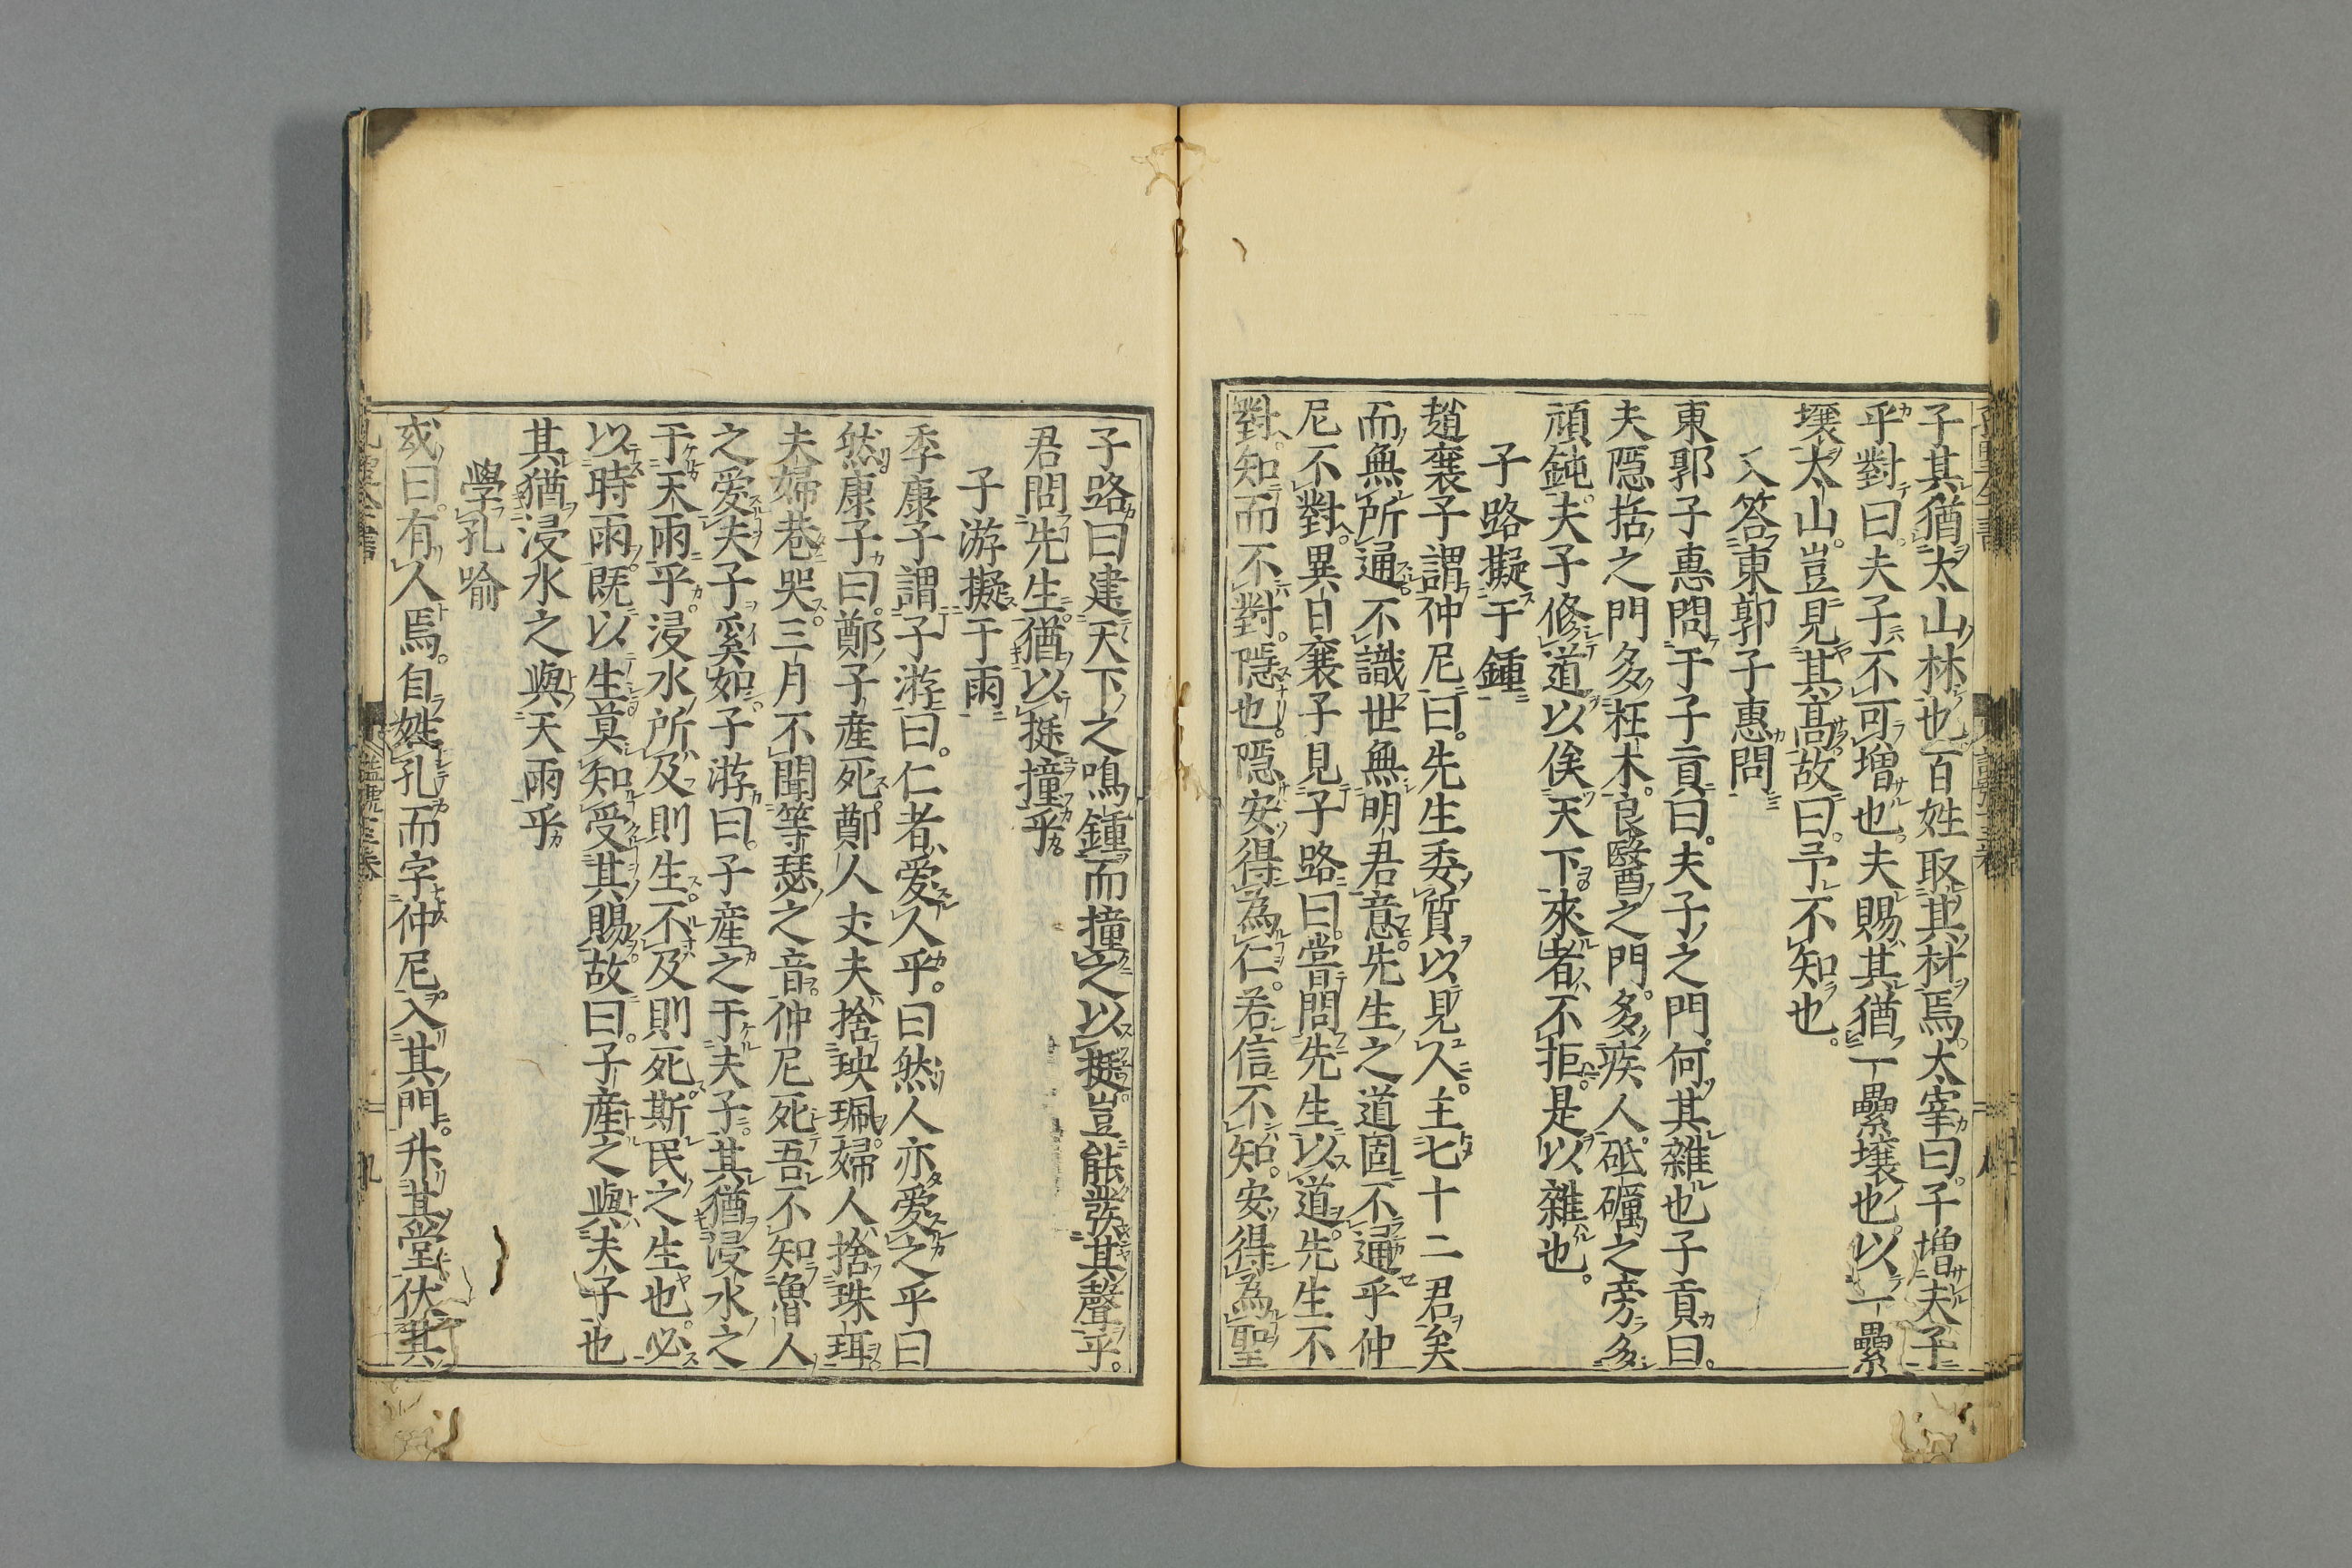 子其猶太山林也百姓取其材焉太宰曰子增夫子
乎對曰夫子不可增也夫賜其猶一壘壤也以一壘
壤太山豈見其高故曰予不知也
又答東郭子惠問
東郭子惠問于子貢曰夫子之門何其雜也子貢曰
夫隱括之門多枉木良醫之門多疾人砥礪之旁多
頑鈍夫子修道以俟天下來者不拒是以雜也
子路擬于鍾
趙襄子謂仲尼曰先生委質以見人主七十二君矣
而無所通不識世無明君意先生之道固不通乎仲
尼不對異日襄子見子路曰嘗問先生以道先生不
對知而不對隱也隱安得為仁若信不知安得為聖
子路曰建天下之鳴鍾而撞之以挺豈能發其聲乎
君問先生猶以挺撞乎
子游擬于雨
季康子謂子游曰仁者愛人乎曰然人亦愛之乎曰
然康子曰鄭子產死鄭人丈夫捨玦珮婦人捨珠珥
夫婦巷哭三月不聞竽瑟之音仲尼死吾不知魯人
之愛夫子奚如子游曰子產之于夫子其猶浸水之
于天雨乎浸水所及則生不及則死斯民之生也必
以時雨既以生莫知受其賜故曰子產之與夫子也
其猶浸水之與天雨乎
學孔喻
或曰有人焉自姓孔而字仲尼入其門升其堂伏其